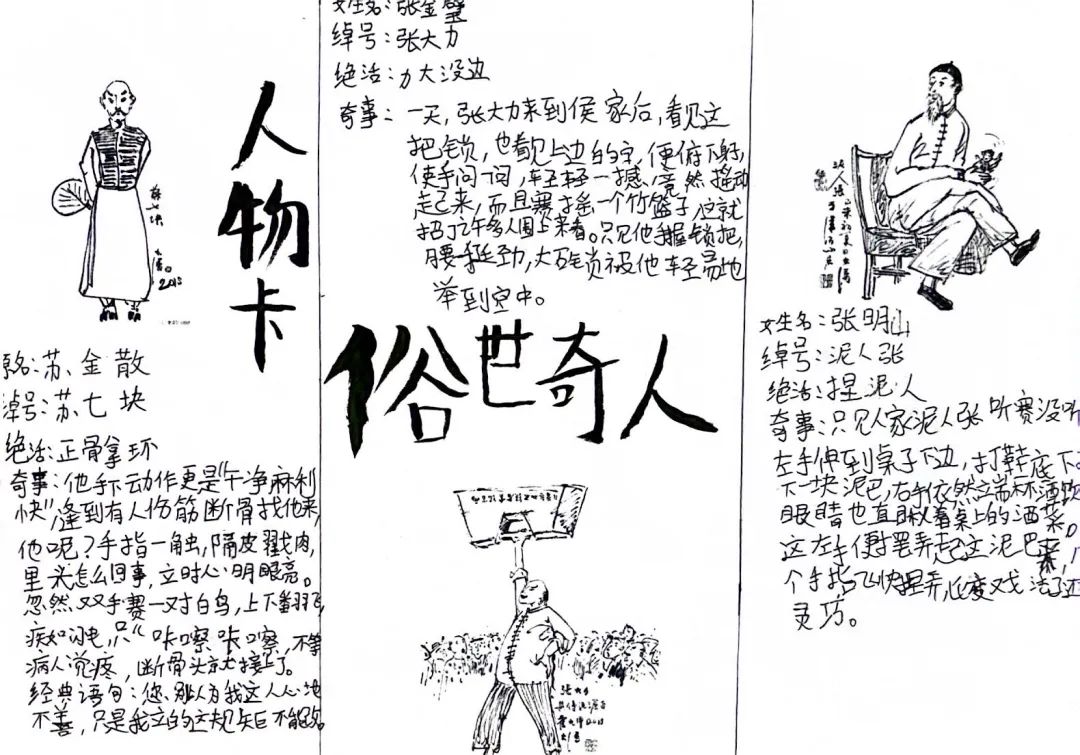 人物卡
苏金散
绰号:苏七块
绝活:正骨拿环
奇事:他手下动作更是“干净麻利
快”,逢到有人伤筋断骨找他来,
他呢?手指一触,隔皮戳肉,
里头怎么回事,立时心明眼亮。
忽然双手赛一对白鸟,上下翻飞,
疾如闪电,只“咔嚓咔嚓,不等
病人觉疼,断骨头就接上了。
经典语句:您别认为我这人心地
不善,只是我立的这规矩不能改。
姓名:张金璧
绰号:张大力
绝活:力大没边
奇事:一天,张大力来到侯家后,看见这
把锁,也看见上边的字,便俯下身,
使手问一问,轻轻一撼,竟然摇动
起来,而且赛摇一个竹篮子,这就
招了许多人围上来看。只见他手握锁把,
腰一挺劲,大石锁被他轻易地
举到空中。
俗世奇人
姓名:张明山
绰号:泥人张
绝活:捏泥人
奇事:只见人家泥人张听赛没听
左手伸到桌子下边,打鞋底下
下一块泥巴,右手依然端杯酒
眼睛也直瞅着桌上的酒菜。
这左手便摆弄起这泥巴来,
个手指飞快捏弄,比变戏法
灵巧。
苏七块
2015
张大力